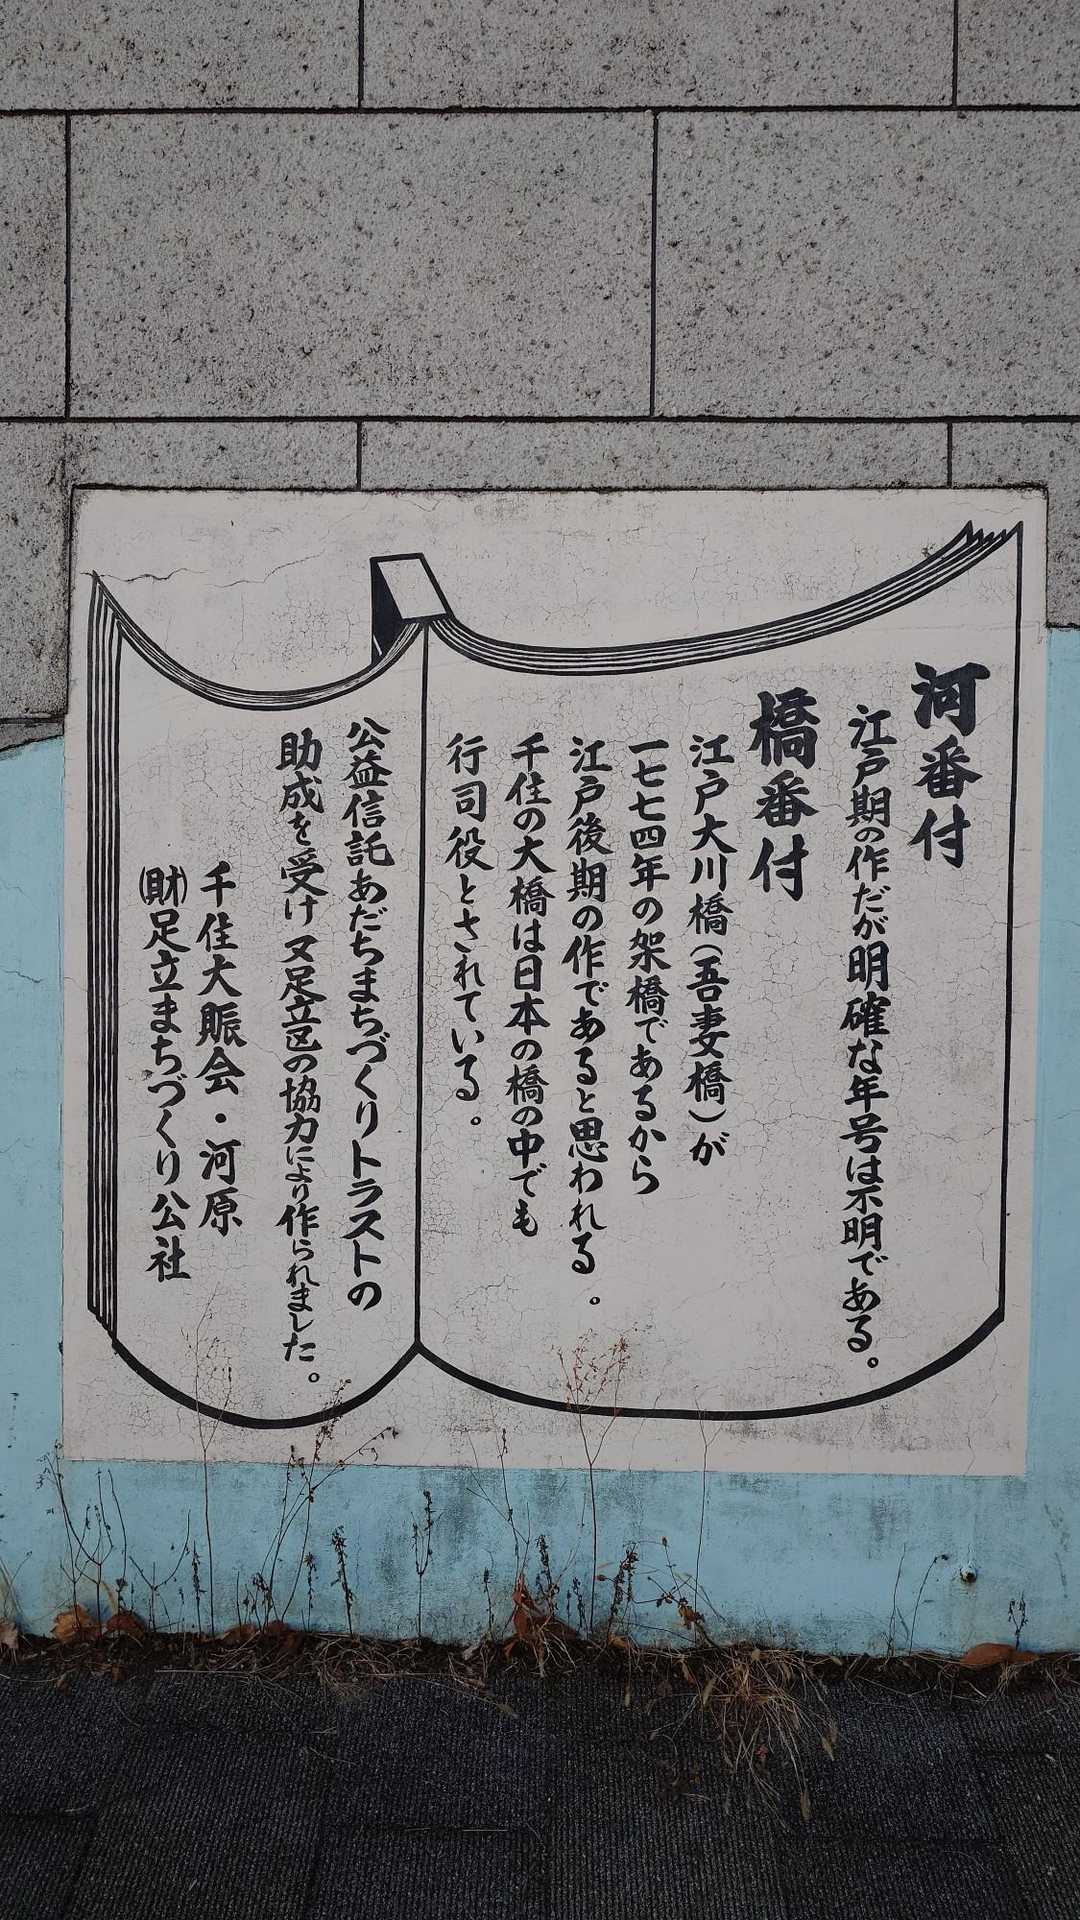 河番付
江戸期の作だが明確な年号は不明である。
橋番付
江戸大川橋(吾妻橋)が
一七七四年の架橋であるから
江戸後期の作であると思われる。
千住の大橋は日本の橋の中でも
行司役とされている。
公益信託あだちまちづくりトラストの
助成を受け又足立区の協力により作られました。
千住大賑会・河原
(財)足立まちづくり公社